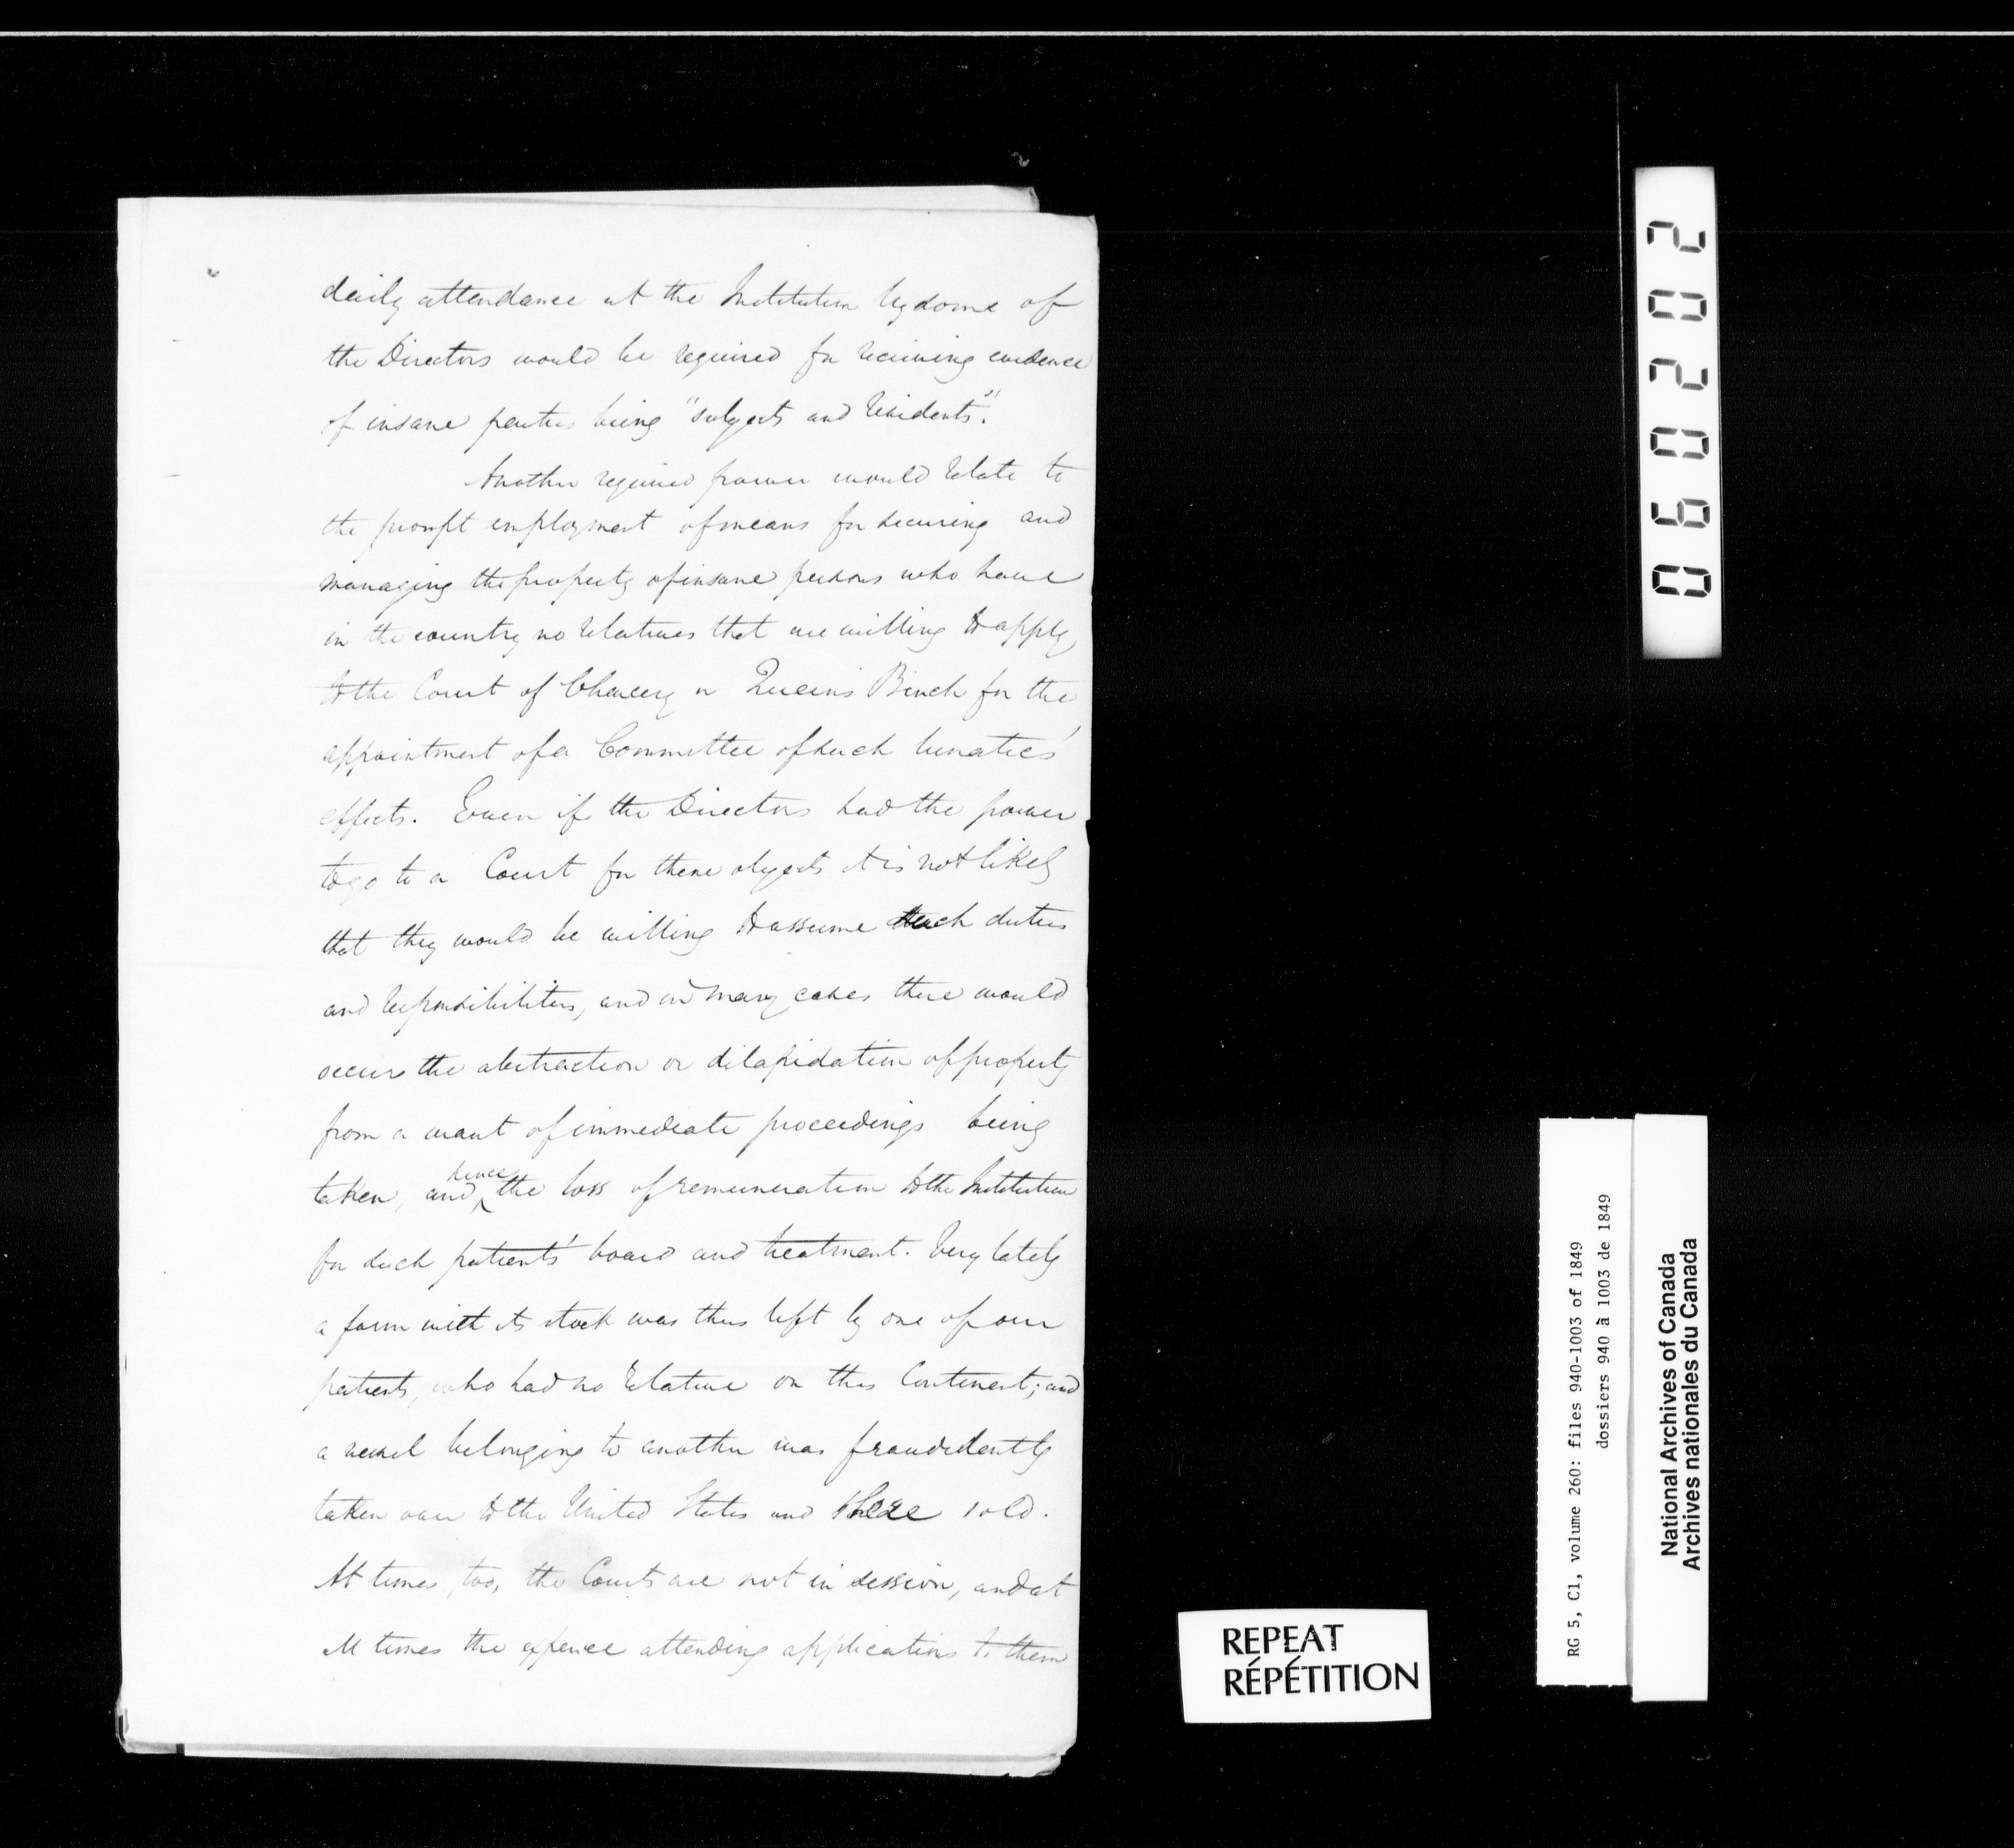 daily attendance at the Institution by some of
the Directors would be required for receiving evidence
of insane parties being "subjects and residents".
Another required power would relate to
the prompt employment of means for securing and
managing the property of insane persons who have
in the country no relatives that are willing to apply
to the Court of Chancery or Queen's Bench for the
appointment of a Committee of such lunatics'
effects. Even if the Directors had the power
to go to a Court for these objects it is not likely
that they would be willing to assume such duties
and responsibilities, and in many cases there would
occur the abstraction or dilapidation of property
from a want of immediate proceedings being
taken, and hence the loss of remuneration to the Institution
for such patients' board and treatment. Very lately
a farm with its stock was thus left by one of our
patients, who had no relative on this Continent; and
a vessel belonging to another was fraudulently
taken over to the United States and there sold.
At times, too, the Courts are not in session, and at
all times the expence attending applications to them
060202
REPEAT
RÉPÉTITION
RG 5, C1, volume 260: files 940-1003 of 1849
dossiers 940 à 1003 de 1849
National Archives of Canada
Archives nationales du Canada